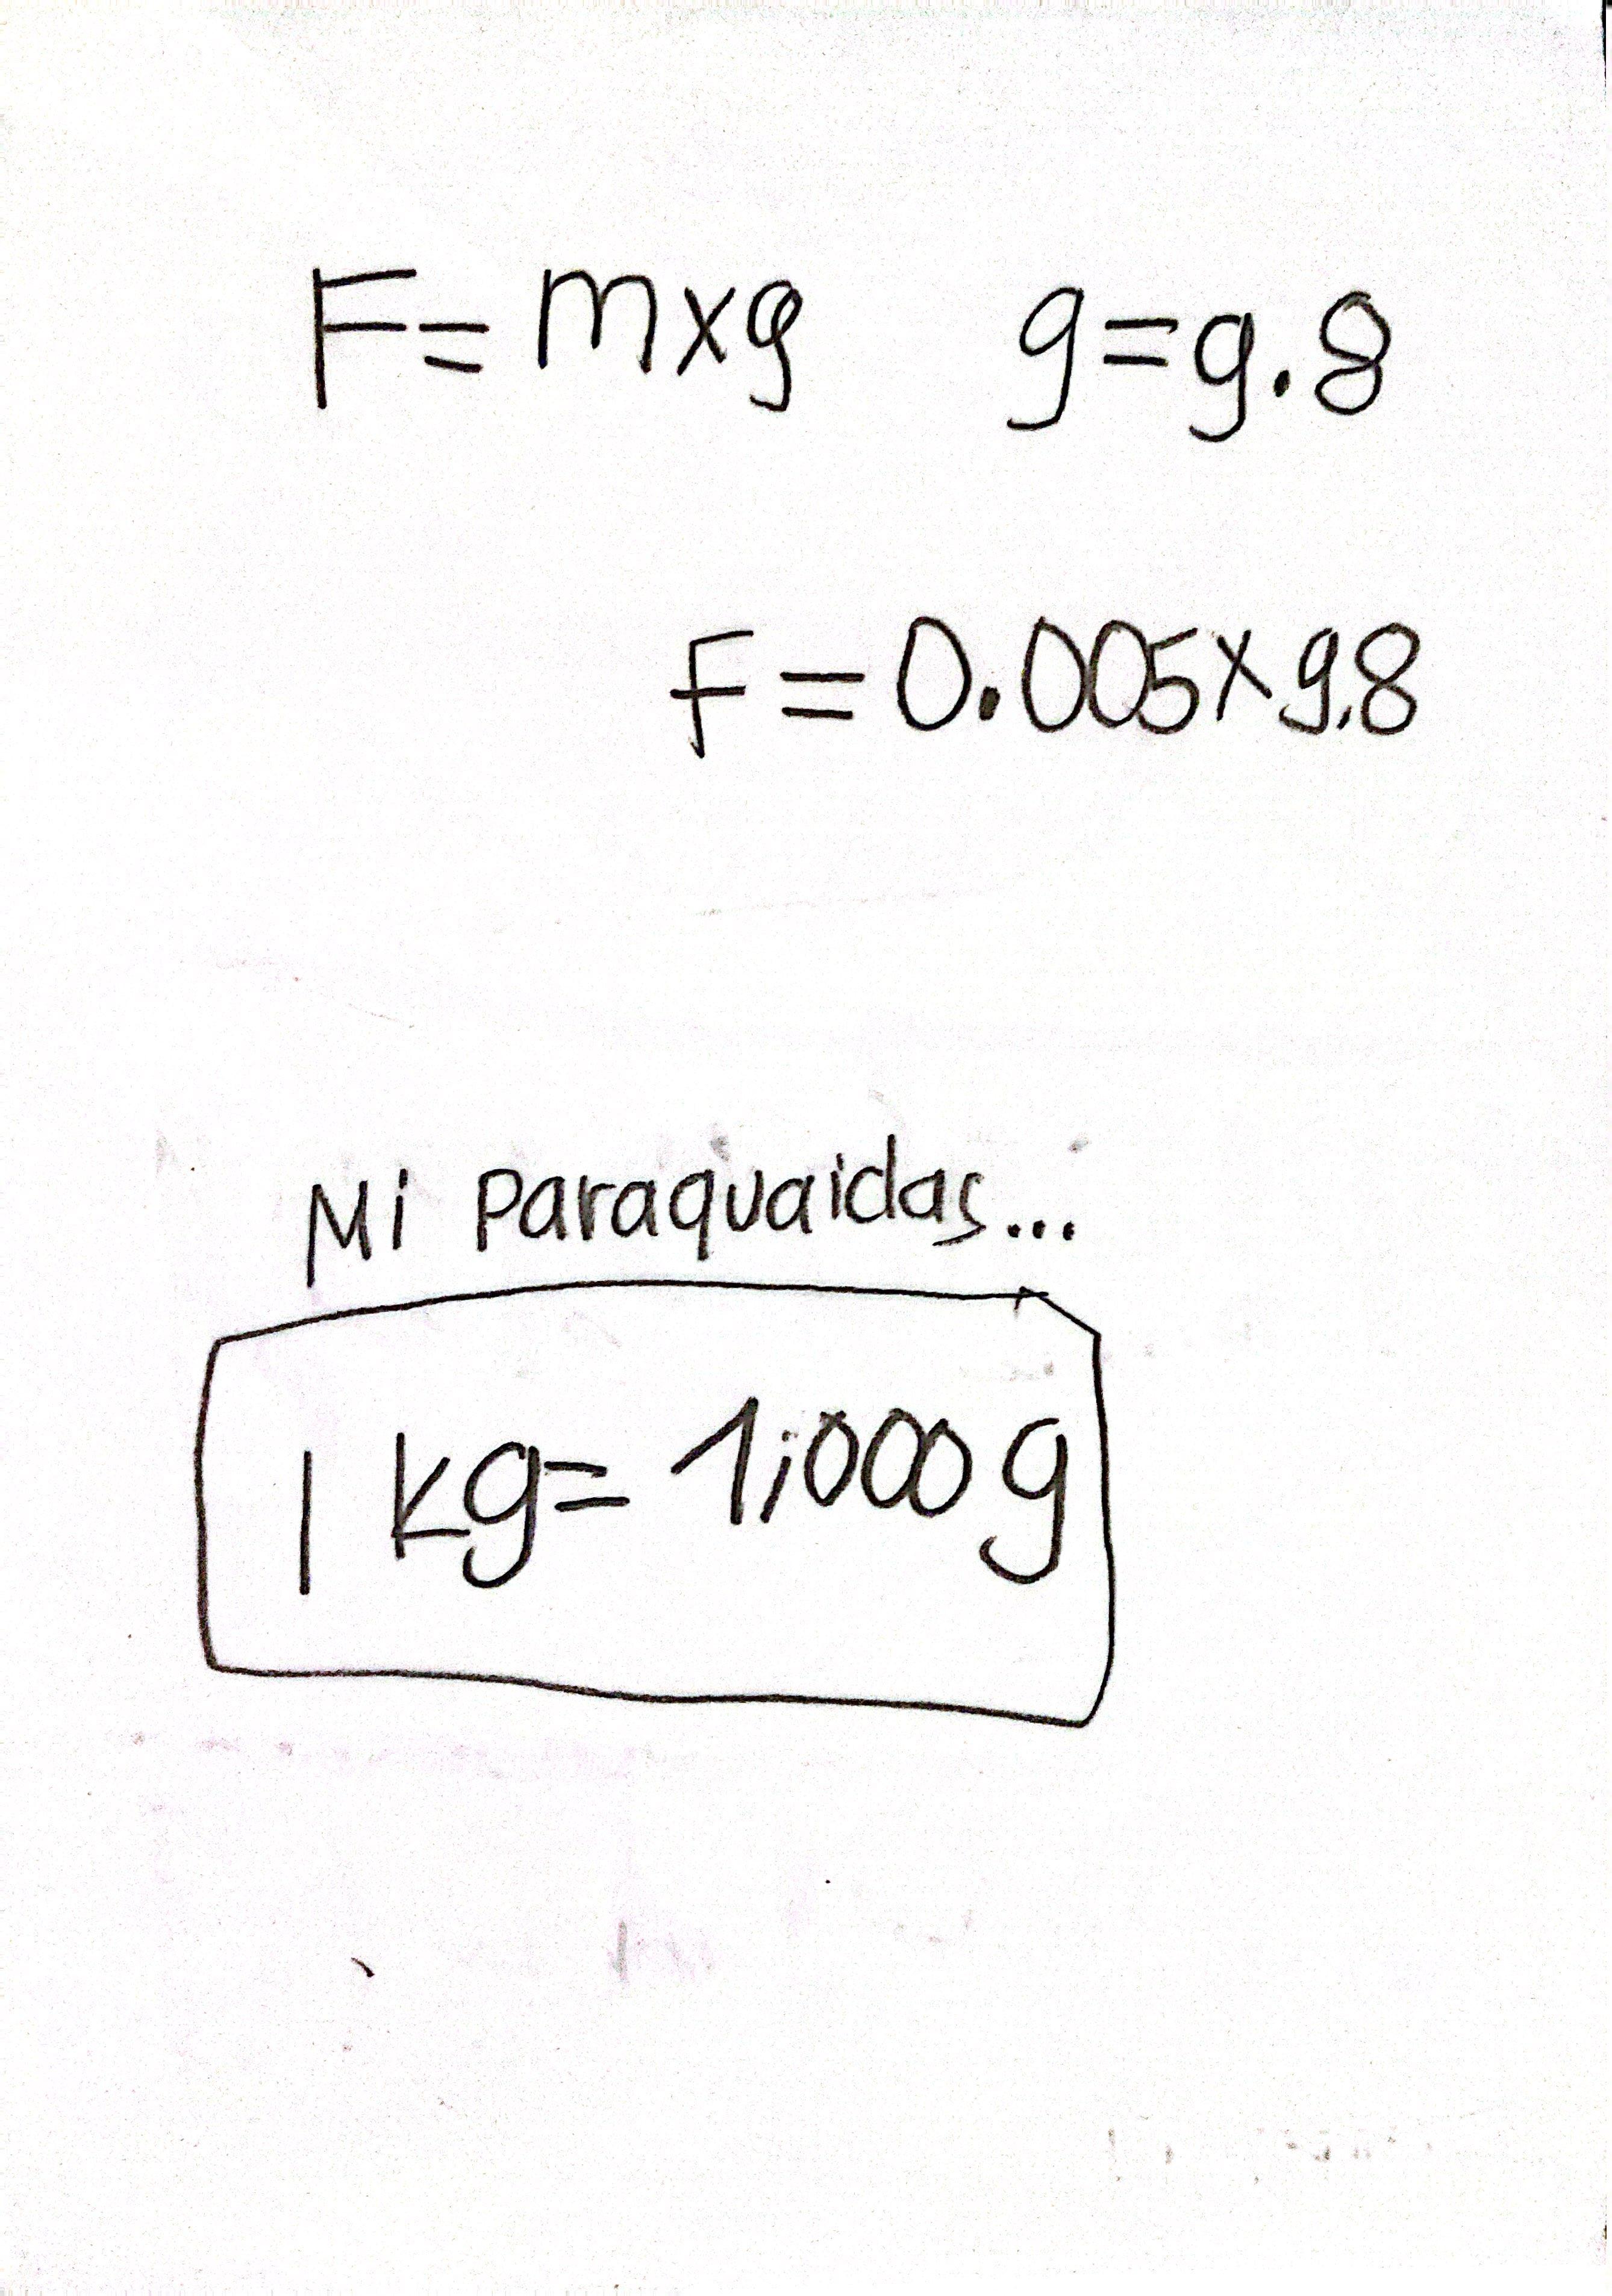 F= mxg g=9.8
F=0.005x9.8
Mi Paraquaidas...
1 kg= 1,000 g